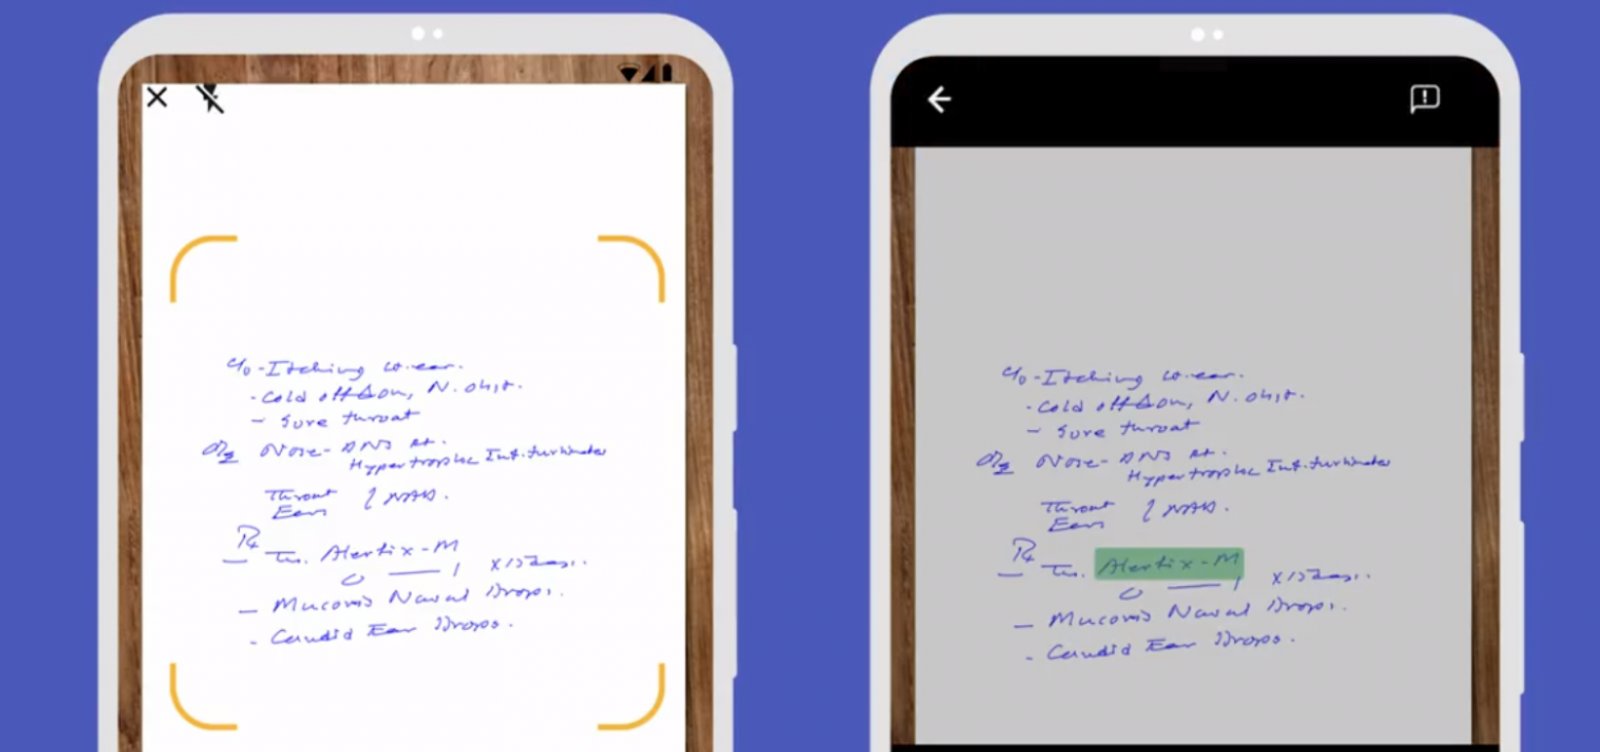 C/o - Itching in ear.
- Cold off & on, N. obst.
- Sore throat
O/E Nose - DNS Rt.
Hypertrophic Inf. turbinates
Throat
Ears } NAD.
Rx
Alertix-M
0 — 1 x 15 days.
- Mucomis Nasal Drops.
- Candid Ear Drops.
C/o - Itching in ear.
- Cold off & on, N. obst.
- Sore throat
O/E Nose - DNS Rt.
Hypertrophic Inf. turbinates
Throat
Ears } NAD.
Rx
Alertix-M
0 — 1 x 15 days.
- Mucomis Nasal Drops.
- Candid Ear Drops.